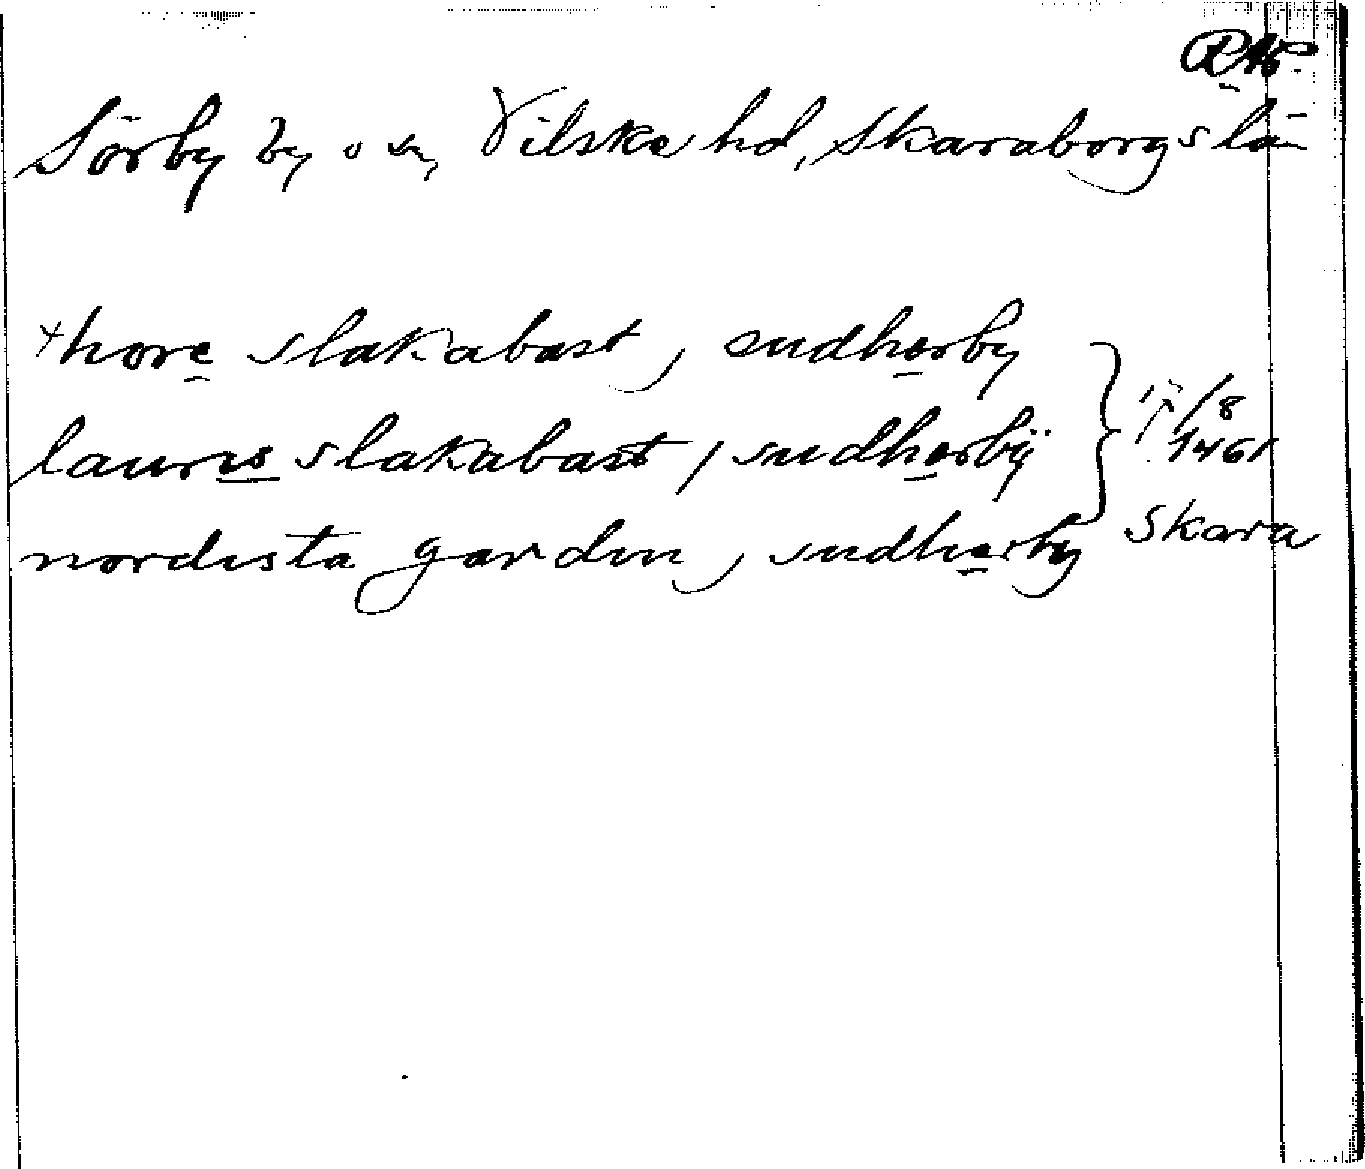 RAp.
Sörby by o sn, Vilske hd, Skaraborgs län
thore slakabast, sudherby
laur*is* slakabast, sudherbÿ
nordista garden, sudherby
/8 1461
Skara